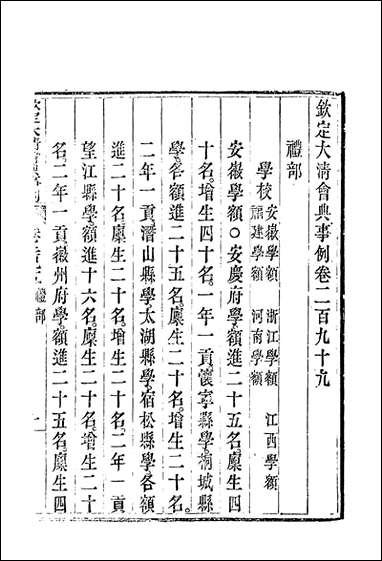 欽定大清會典事例卷二百九十九
禮部
學校 安徽學額 浙江學額 江西學額
福建學額 河南學額
安徽學額○安慶府學額進二十五名廩生四
十名增生四十名一年一貢懷寧縣學桐城縣
學各額進二十五名廩生二十名增生二十名
二年一貢潛山縣學太湖縣學宿松縣學各額
進二十名廩生二十名增生二十名二年一貢
望江縣學額進十六名廩生二十名增生二十
名二年一貢徽州府學額進二十五名廩生四
欽定大清會典事例 卷 禮部 一